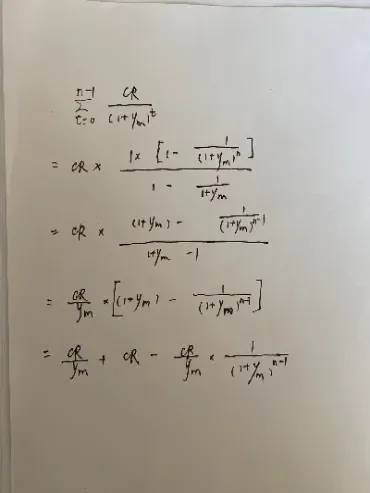 \sum_{t=0}^{n-1} \frac{CR}{(1+y_m)^t}
= CR × \frac{1 × [1 - \frac{1}{(1+y_m)^n}]}{1 - \frac{1}{1+y_m}}
= CR × \frac{(1+y_m) - \frac{1}{(1+y_m)^{n-1}}}{1+y_m - 1}
= \frac{CR}{y_m} × [(1+y_m) - \frac{1}{(1+y_m)^{n-1}}]
= \frac{CR}{y_m} + CR - \frac{CR}{y_m} × \frac{1}{(1+y_m)^{n-1}}